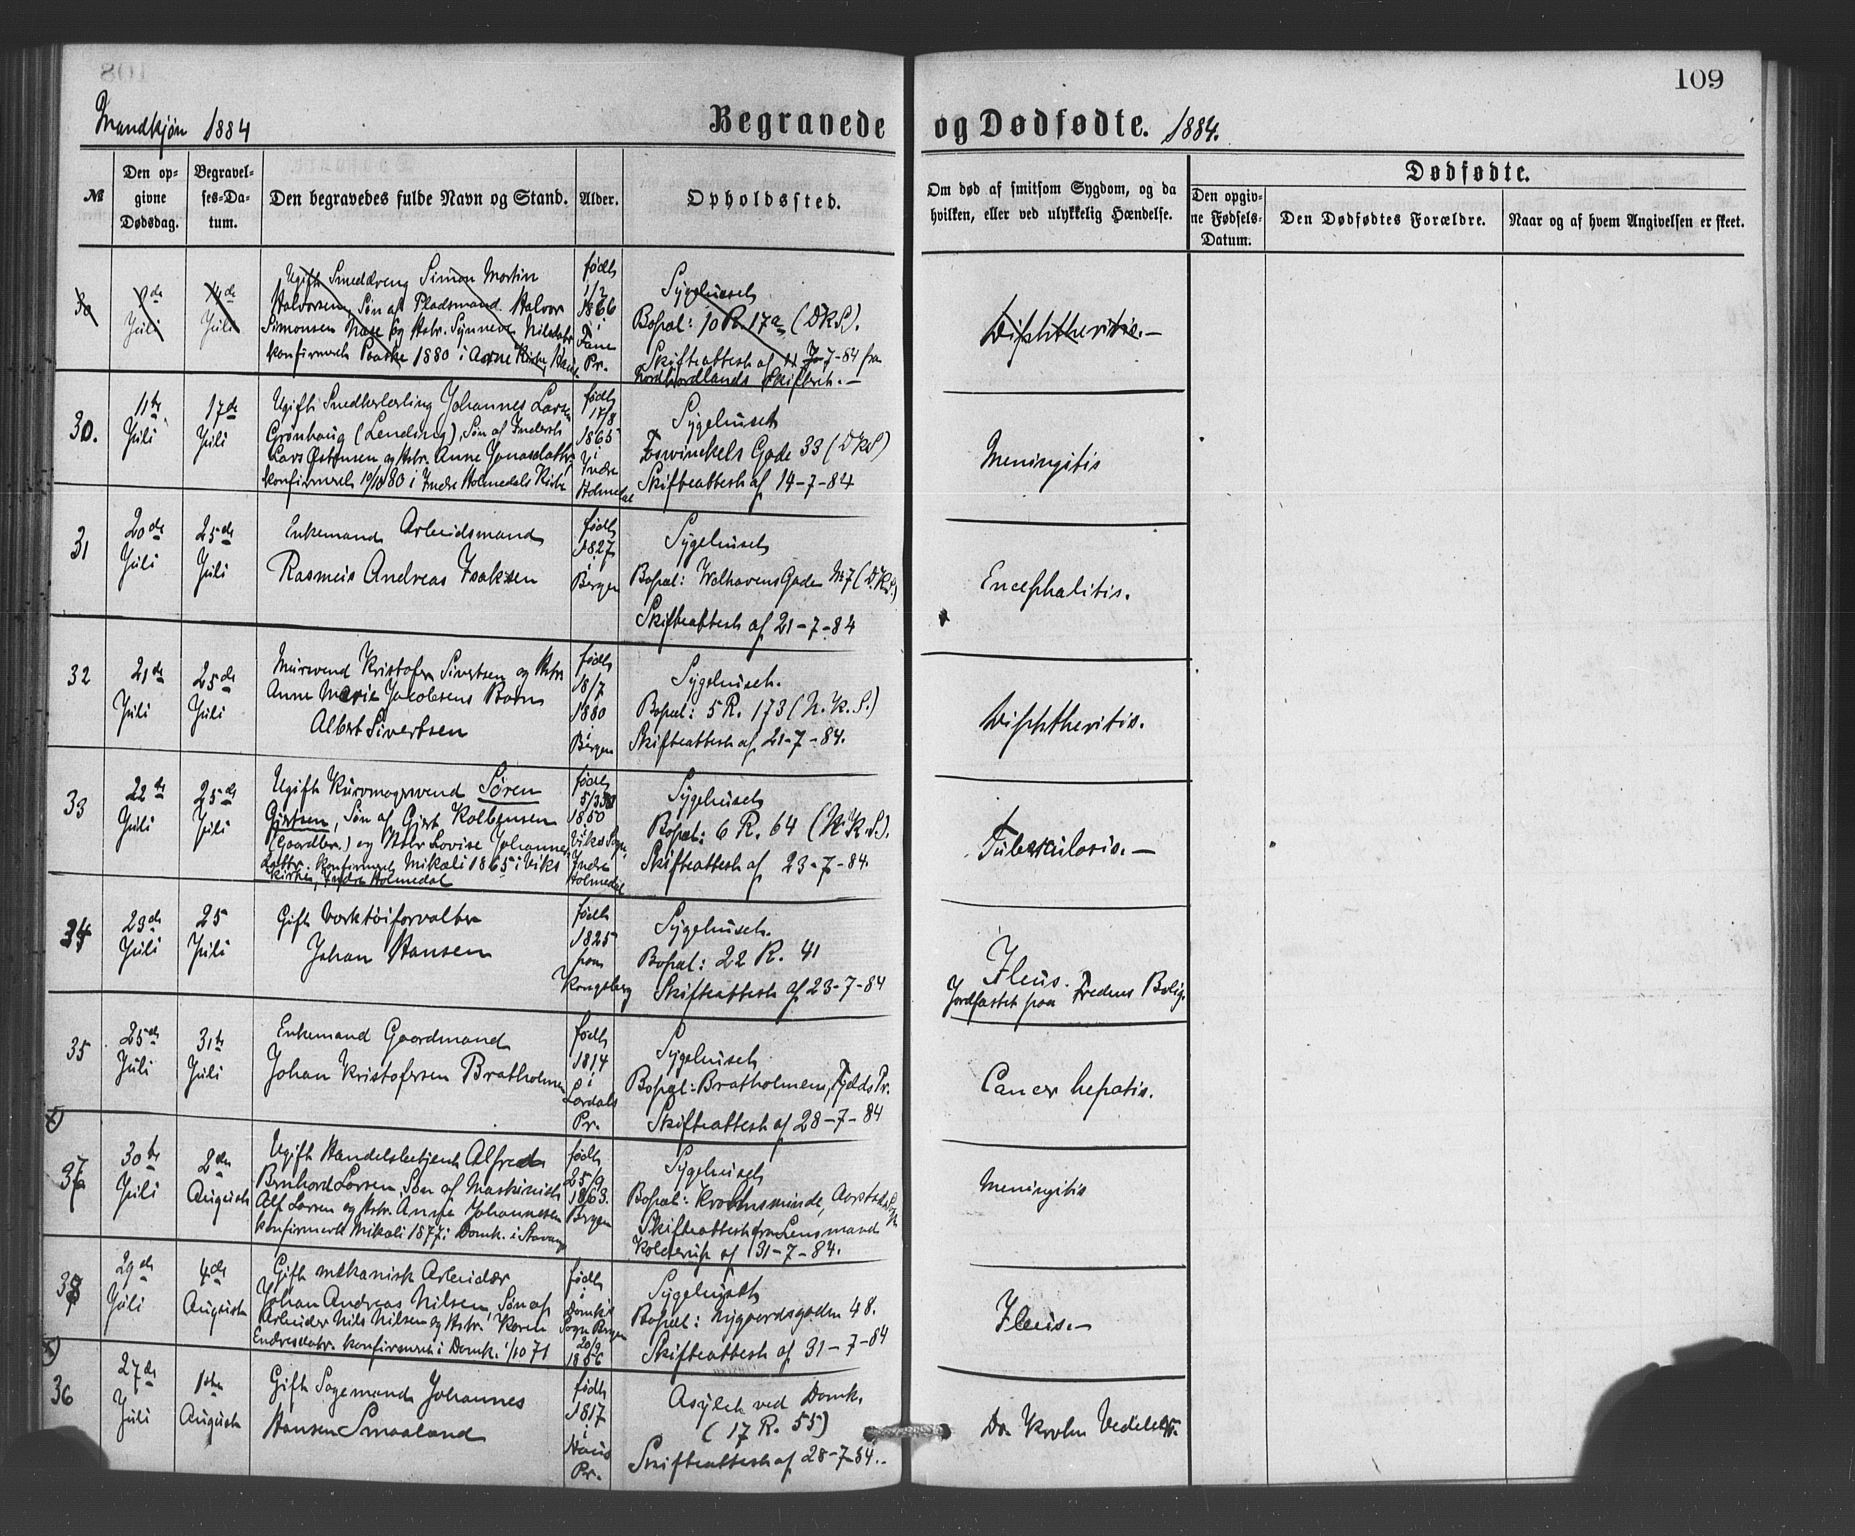 109
Mandkjøn 1884
Begravede og Dødfødte. 1884.
№
Den op-
givne
Dødsdag.
Begravel-
ses-Da-
tum.
Den begravedes fulde Navn og Stand.
Alder.
Opholdssted.
Om død af smitsom Sygdom, og da
hvilken, eller ved ulykkelig Hændelse.
Dødfødte.
Den opgiv-
ne Fødsels-
Datum.
Den Dødfødtes Forældre.
Naar og af hvem Angivelsen er skeet.
30
8de
Juli
14de
Juli
Ugift Smeddreng Simon Martin
Halvorsen, Søn af Pladsmand Halvor
Simonsen og Hstr. Synneve Nilsdatr
konfirmeret Paaske 1880 i Aarne Kirke
født
1/2
1866
i
Fane
Pr.
Sygehuset
Bopæl: 10 R. 17a (DkS).
Skifteattest af 11-7-84 fra
Nordhordlands Skifteret. —
Diphtheritis. —
30.
11te
Juli
17de
Juli
Ugift Snedkerlærling Johannes Larsen
Grønhaug (Lending), Søn af Inderst
Lars Østensen og Hstr. Anne Jonasdatter
konfirmeret 10/10 80 i Indre Holmedals Kirke
født
17/8
1865
i
Indre
Holmedal
Sygehuset
Foswinckels Gade 33 (DkS)
Skifteattest af 14-7-84
Meningitis
31
20de
Juli
25de
Juli
Enkemand Arbeidsmand
Rasmus Andreas Isaksen
født
1827
i
Bergen
Sygehuset
Bopæl: Welhavens Gade № 7 (D.K.S.)
Skifteattest af 21-7-84
Encephalitis.
32
21de
Juli
25de
Juli
Mursvend Kristofer Sivertsen og Hstr
Anne Marie Jacobsens Barn
Albert Sivertsen
født
18/7
1880
i
Bergen
Sygehuset.
Bopæl: 5 R. 173 (N.K.S.)
Skifteattest af 21-7-84.
Diphtheritis.
33
22de
Juli
25de
Juli
Ugift Kurvmagersvend Søren
Gjertsen, Søn af Gjert Kolbensen
(Gaardbr.) og Hstr Lovise Johannes
datter. konfirmeret Mikali 1865 i Viks
Kirke, Indre Holmedal
født
1850
Viks Sogn,
Indre
Holmedal
Sygehuset
Bopæl: 6 R. 64 (N.K.S.).
Skifteattest af 23-7-84.
Tuberkulosis. —
34
23de
Juli
25
Juli
Gift Værktøiforvalter
Johan Hansen
født
1825
paa
Kongsberg
Sygehuset.
Bopæl: 22 R. 41
Skifteattest af 23-7-84
Ileus.
Jordfæstet paa Fredens Bolig.
35
25de
Juli
31te
Juli
Enkemand Gaardmand
Johan Kristofersen Bratholmen
født
1814
i
Lærdals
Pr.
Sygehuset
Bopæl: Bratholmen, Fjelds Pr.
Skifteattest af 28-7-84
Cancer hepatis.
37
30te
Juli
2den
August
Ugift Handelsbetjent Alfred
Bernhard Larsen, Søn af Maskinist
Alf Larsen og Hstr. Anne Johannesen
konfirmeret Mikali 1877 i Domk. i Stavanger
født
25/9
1863.
Bergen
Sygehuset
Bopæl: Krohnsminde, Aarstad
Skifteattest fra Lensmand
Kolderup af 31-7-84.
Meningitis
38
29de
Juli
4de
August
Gift mekanisk Arbeider
Johan Andreas Nilsen, Søn af
Arbeider Nils Nilsen og Hstr. Karen
Endresdatr. konfirmeret i Domk. 1/10 71
født
i
Domk.
Sogn Bergen
20/9
1856
Sygehuset
Bopæl: Nygaardsgaden 48.
Skifteattest af 31-7-84
Ileus. —
36
27de
Juli
1ste
August
Gift Sagemand Johannes
Hansen Smaaland
født
1817
i
Haus
Pr.
Asylet ved Domk.
(17 R. 55)
Skifteattest af 28-7-84. -
Dr. Krohn Vedeler.